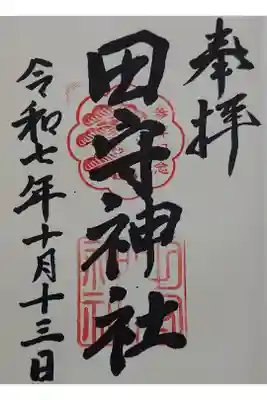 奉拝
田守神社
令和七年十月十三日